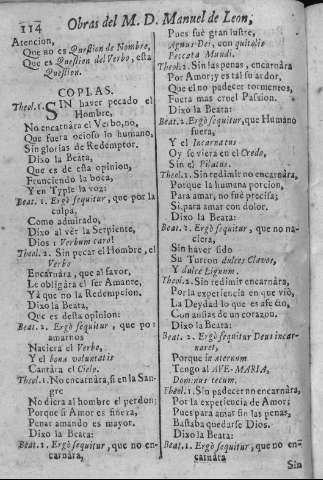 114 Obras del M. D. Manuel de Leon,
Atencion,
Que no es Question de Nombre,
Que es Question del Verbo, esta
Question.
COPLAS.
Theol.1. SIN haver pecado el
Hombre,
No encarnâra el Verbo, no,
Que fuera ocioso lo humano,
Sin glorias de Redemptor.
Dixo la Beata,
Que es de esta opinion,
Frunciendo la boca,
Y en Typle la voz:
Beat. 1. Ergò sequitur, que por la
culpa,
Como admirado,
Dixo al vèr la Serpiente,
Dios: Verbum caro!
Theol.2. Sin pecar el Hombre, el
Verbo
Encarnâra, que al savor,
Le obligára el ser Amante,
Yà que no la Redempcion.
Dixo la Beata,
Que es desta opinion:
Beat. 2. Ergò sequitur, que por
amarnos
Naciera el Verbo,
Y el bona voluntatis
Cantàra el Cielo.
Theol.1. No encarnâra, si en la San-
gre
No diera al hombre el perdon;
Porque si Amor es fineza,
Penar amando es mayor.
Dixo la Beata:
Beat.1. Ergò sequitur, que no en-
carnâra,
Pues fuè gran lustre,
Agnus Dei, con quitolis
Peccata Mundi.
Theol.2. Sin las penas, encarnâra
Por Amor; y es tal su ardor,
Que el no padecer tormentos,
Fuera mas cruel Passion.
Dixo la Beata:
Beat.2. Ergò sequitur, que Humano
fuera,
Y el Incarnatus
Oy se viera en el Credo,
Sin el Pilatus.
Theol.1. Sin redimir no encarnàra,
Porque la humana porcion,
Para amar, no fuè precisa;
Si, para amar con dolor.
Dixo la Beata:
Beat. 1. Ergò sequitur, que no na-
ciera,
Sin haver sido
Su Turron dulces Clavos,
Y dulce Lignum.
Theol.2. Sin redimir encarnâra,
Por la experiencia en que viò,
La Deydad lo que es afecto,
Con ansias de un corazon.
Dixo la Beata:
Beat. 2. Ergò sequitur Deus incar-
naret,
Porque in aternum
Tengo al AVE-MARIA,
Dominus tecum.
Theol.1. Sin padecer no encarnàra,
Por la experiencia de Amor;
Pues para amar sin las penas,
Bastaba quedarse Dios.
Dixo la Beata:
Beat.1. Ergò sequitur, que no en-
carnâra
Sin